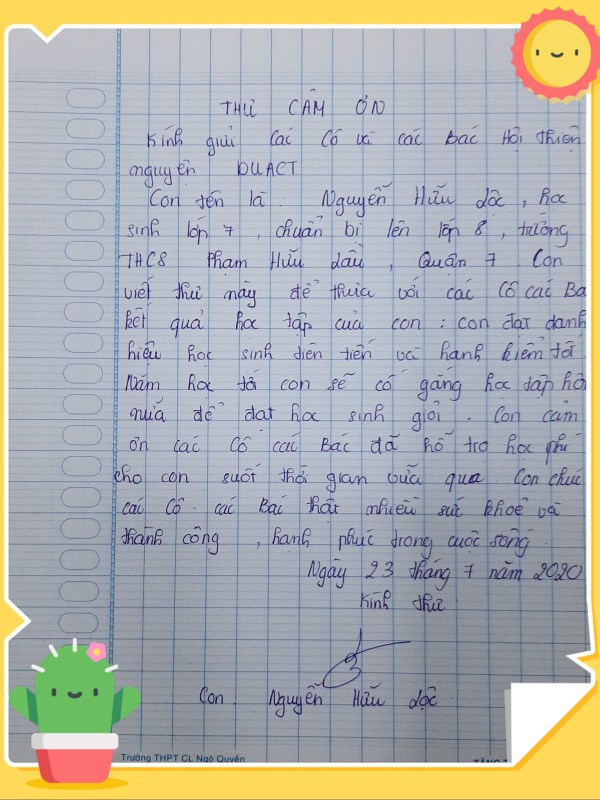 THƯ CẢM ƠN
Kính gửi các Cô và các Bác Hội thiện
nguyện DUACT
Con tên là : Nguyễn Hữu Lộc , học
sinh lớp 7 , chuẩn bị lên lớp 8 , trường
THCS Phạm Hữu Lầu , Quận 7 Con
viết thư này để thưa với các Cô các Bá
kết quả học tập của con : con đạt danh
hiệu học sinh tiên tiến và hạnh kiểm tốt
Năm học tới con sẽ cố gắng học tập hơ
nữa để đạt học sinh giỏi . Con cảm
ơn các Cô các Bác đã hỗ trợ học phí
cho con suốt thời gian vừa qua . Con chúc
các Cô . các Bác thật nhiều sức khoẻ và
thành công , hạnh phúc trong cuộc sống .
Ngày 23 tháng 7 năm 2020
Kính thư
Con . Nguyễn Hữu Lộc .
Trường THPT CL Ngô Quyền